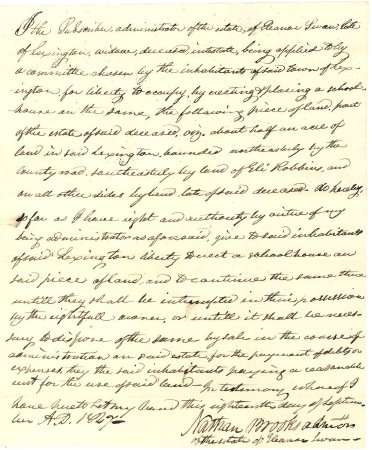 I the Subscriber, administrator of the estate, of Eleanor Swan, late
of Lexington, widow, deceased, intestate, being applied to by
a committee chosen by the inhabitants of said town of Lex-
ington for liberty to occupy, by erecting & placing a school-
house on the same, the following piece of land, part
of the estate of said deceased, viz. about half an acre of
land in said Lexington, bounded northeasterly by the
county road, southeasterly by land of Eli Robbins, and
on all other sides by land late of said deceased do hereby,
so far as I have right and authority by virtue of my
being administrator as aforesaid, give to said inhabitants
of said Lexington liberty to erect a schoolhouse on
said piece of land, and to continue the same there
untill they shall be interrupted in their possession
by the rightfull owner, or untill it shall be neces-
sary to dispose of the same by sale in the course of
administration on said estate for the payment of debts or
expenses, they the said inhabitants paying a reasonable
rent for the use of said land. In testimony whereof I
have hereto set my hand this eighteenth day of Septem-
ber A.D.
Nathan Brooks admr on
the estate of Eleanor Swan